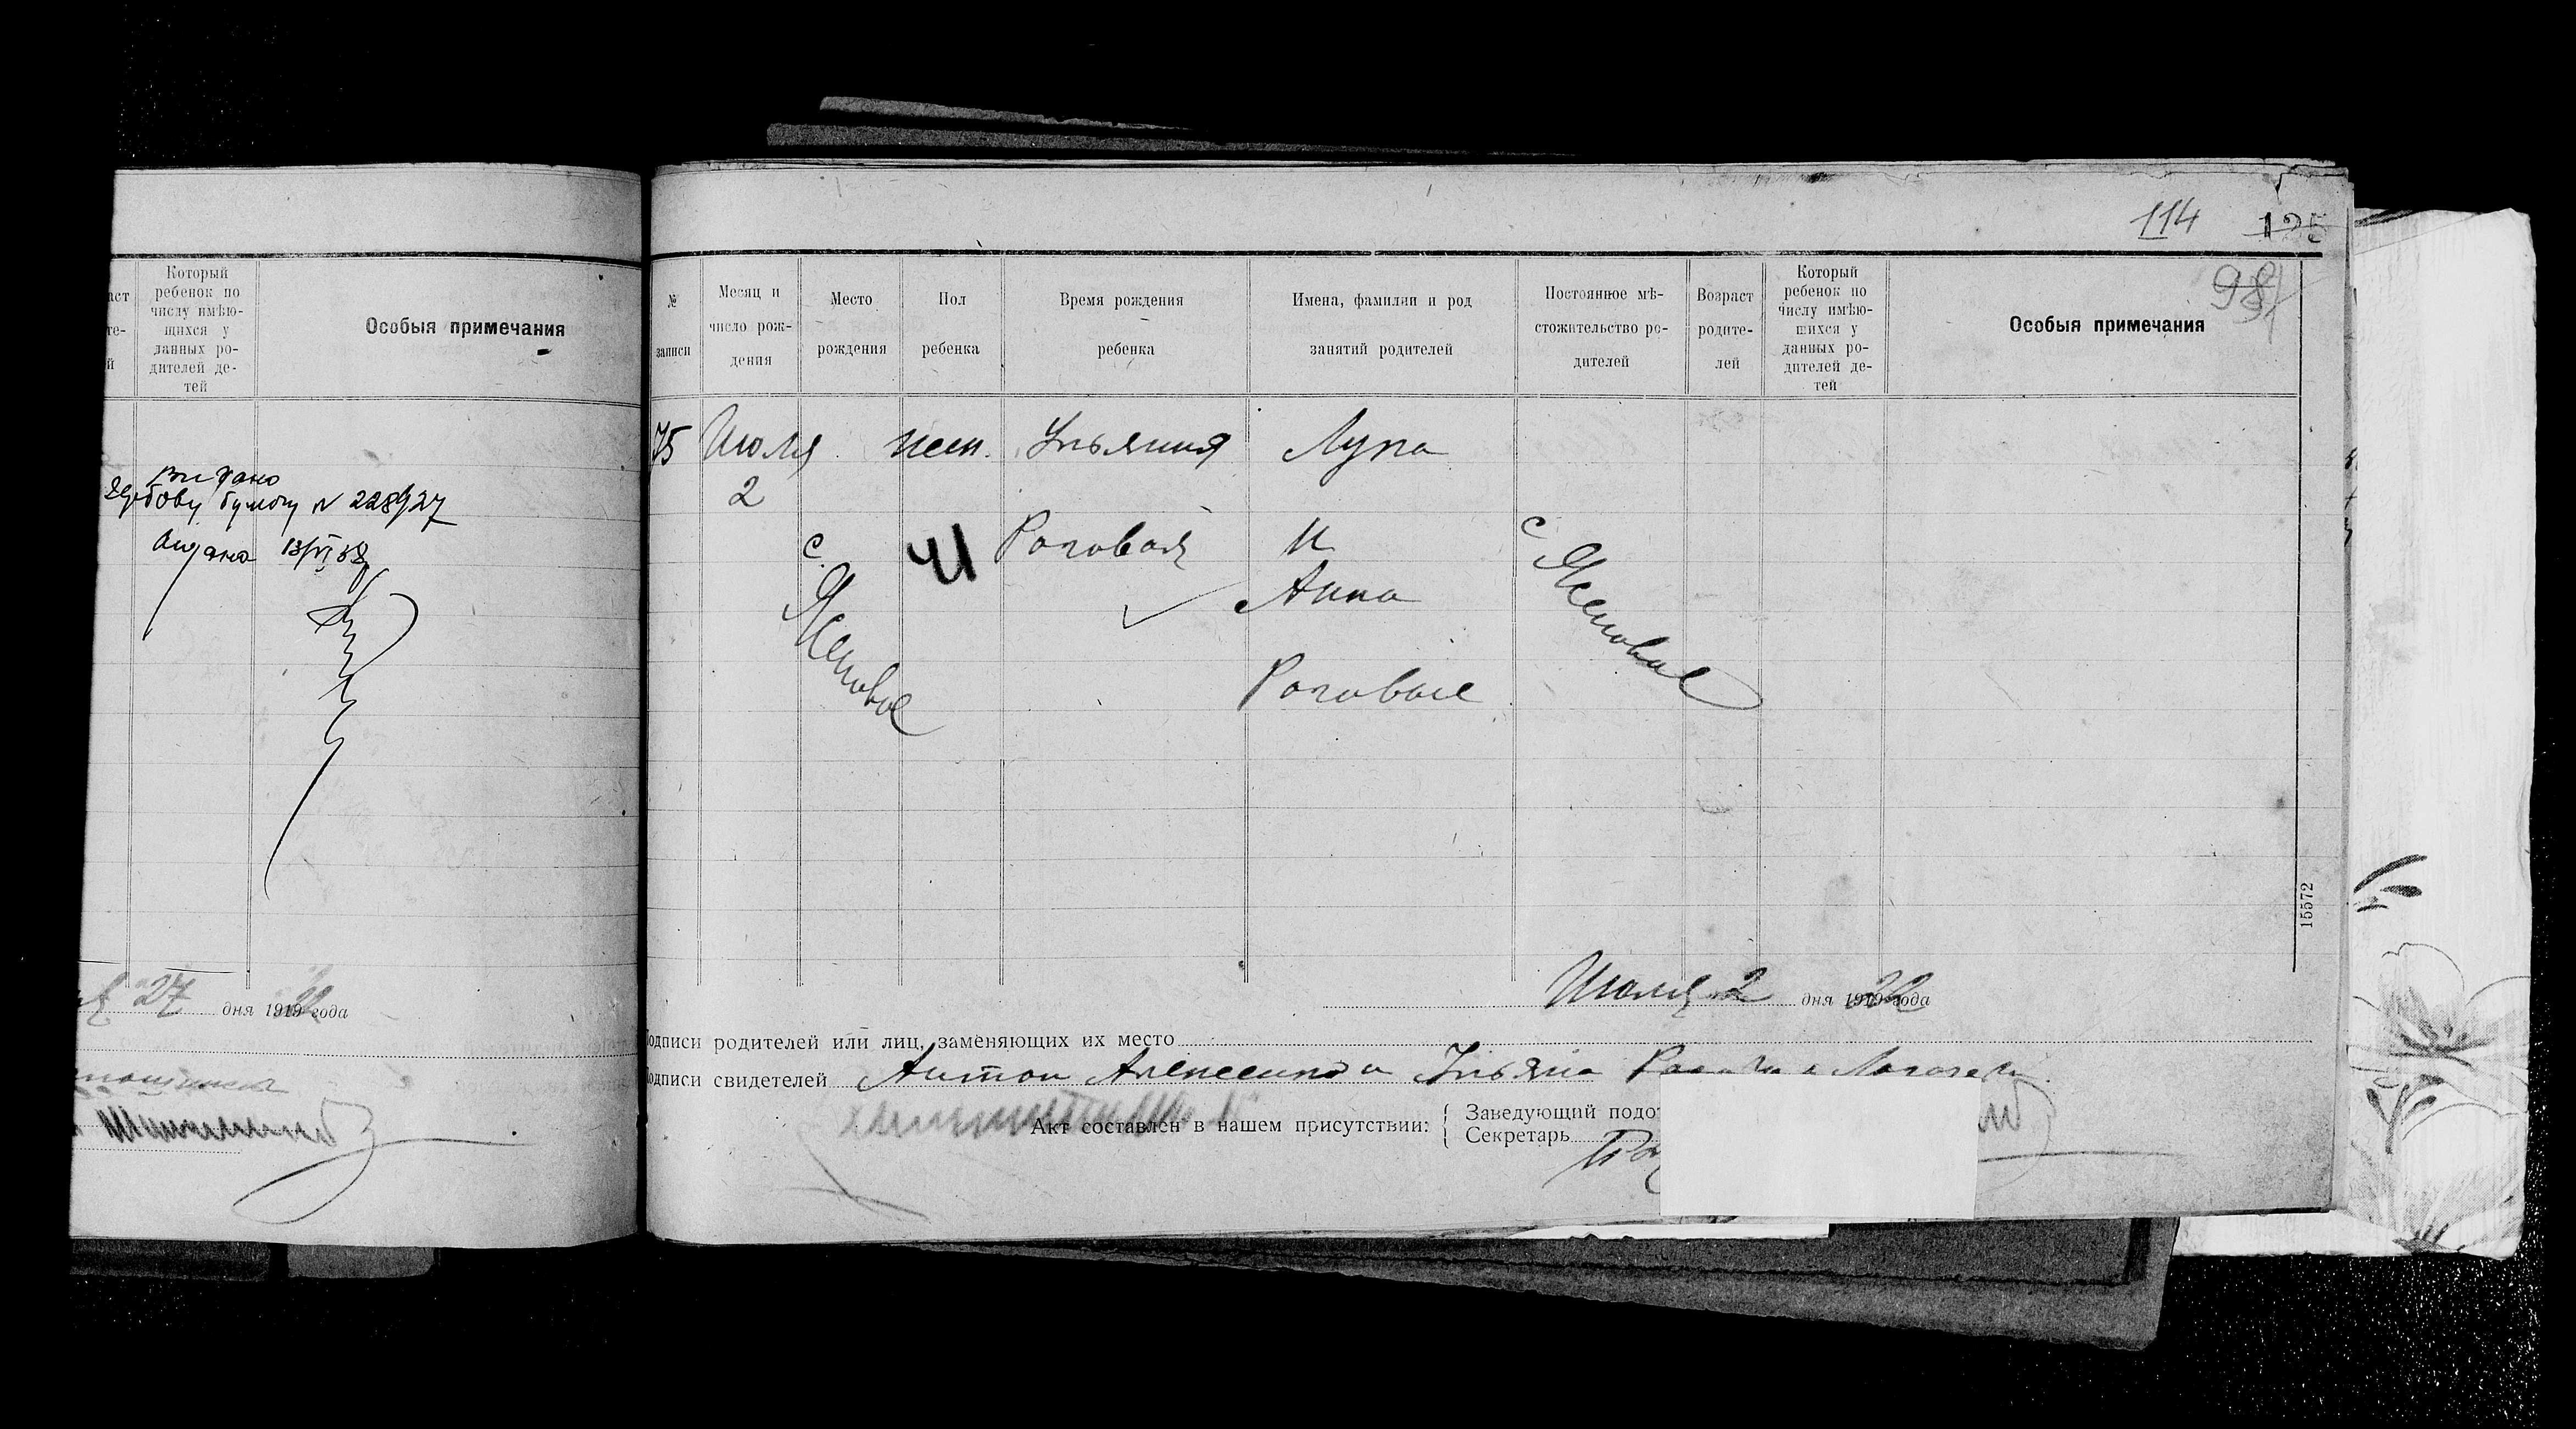 Который
ребенок по
числу имѣю-
щихся у
данных ро-
дителей де-
тей
Особыя примечания
Видано
бумагу N 228/27
13/VI 38
27 дня 1919 года
114 125
98
№
записи
Месяц и
число рож-
дения
Место
рождения
Пол
ребенка
Время рождения
ребенка
Имена, фамилии и род
занятий родителей
Постоянное мѣ-
стожительство ро-
дителей
Возраст
родите-
лей
Который
ребенок по
числу имѣю-
щихся у
данных ро-
дителей де-
тей
Особыя примечания
75 Июля жен. Ульяния Лупа
2
с. Ясеновое
Ч
Роговая И
Анна
Роговые
с Ясеновое
15572
Июля 2 дня 1919 22 года
Подписи родителей или лиц, заменяющих их место
Подписи свидетелей Антон Ульяна
Акт составлен в нашем присутствии:
Заведующий подот
Секретарь